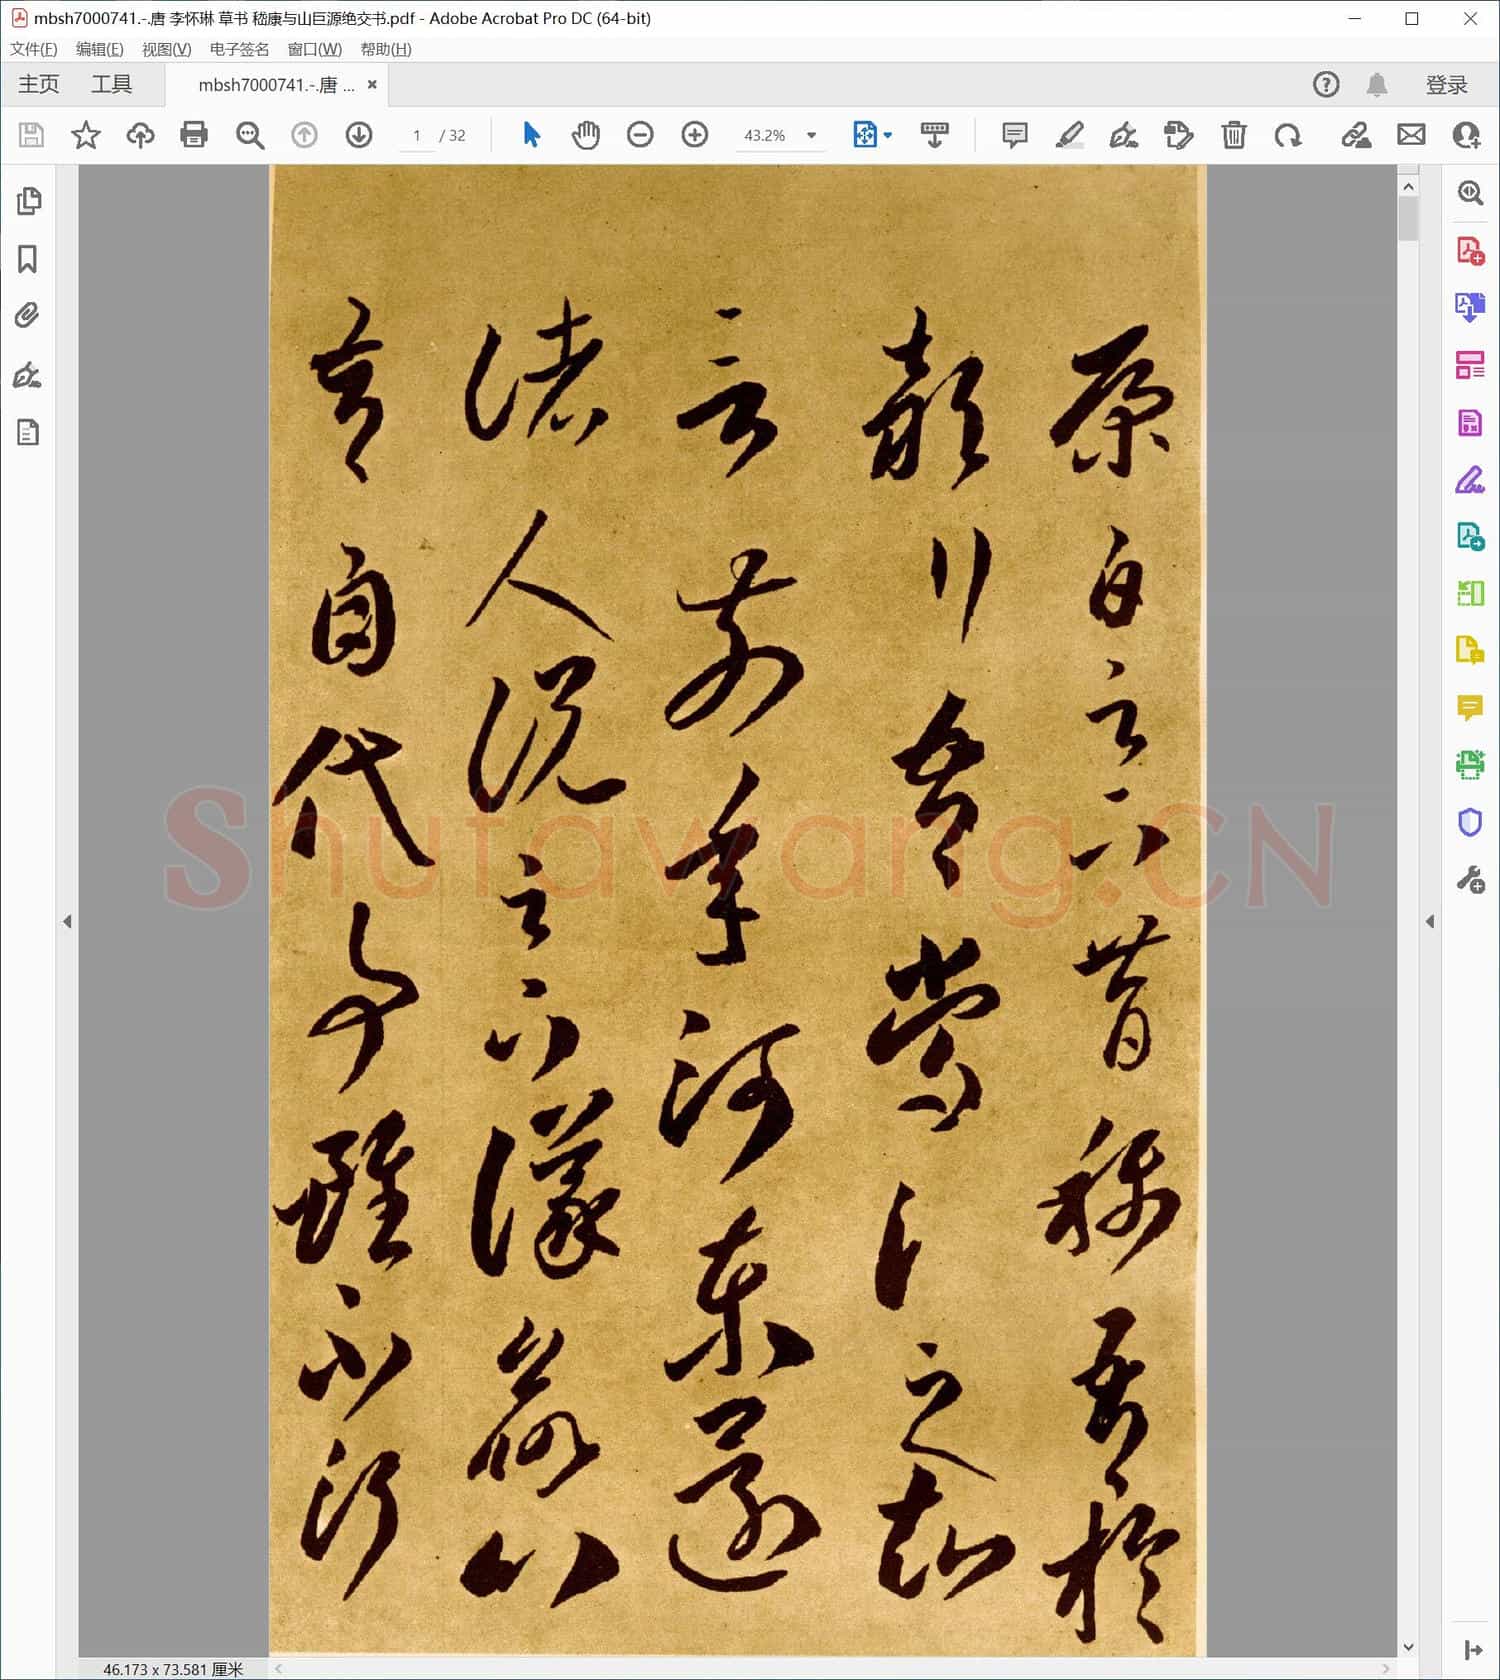 mbsh7000741.-.唐 李怀琳 草书 嵇康与山巨源绝交书.pdf - Adobe Acrobat Pro DC (64-bit)
文件(F) 编辑(E) 视图(V) 电子签名 窗口(W) 帮助(H)
主页 工具 mbsh7000741.-.唐 ... 登录
1 / 32 43.2%
康白足下昔稱吾於
潁川吾嘗謂之知
言前年河東還
諸人說足下議欲以
吾自代事雖不行
Shufawang.CN
46.173 x 73.581 厘米